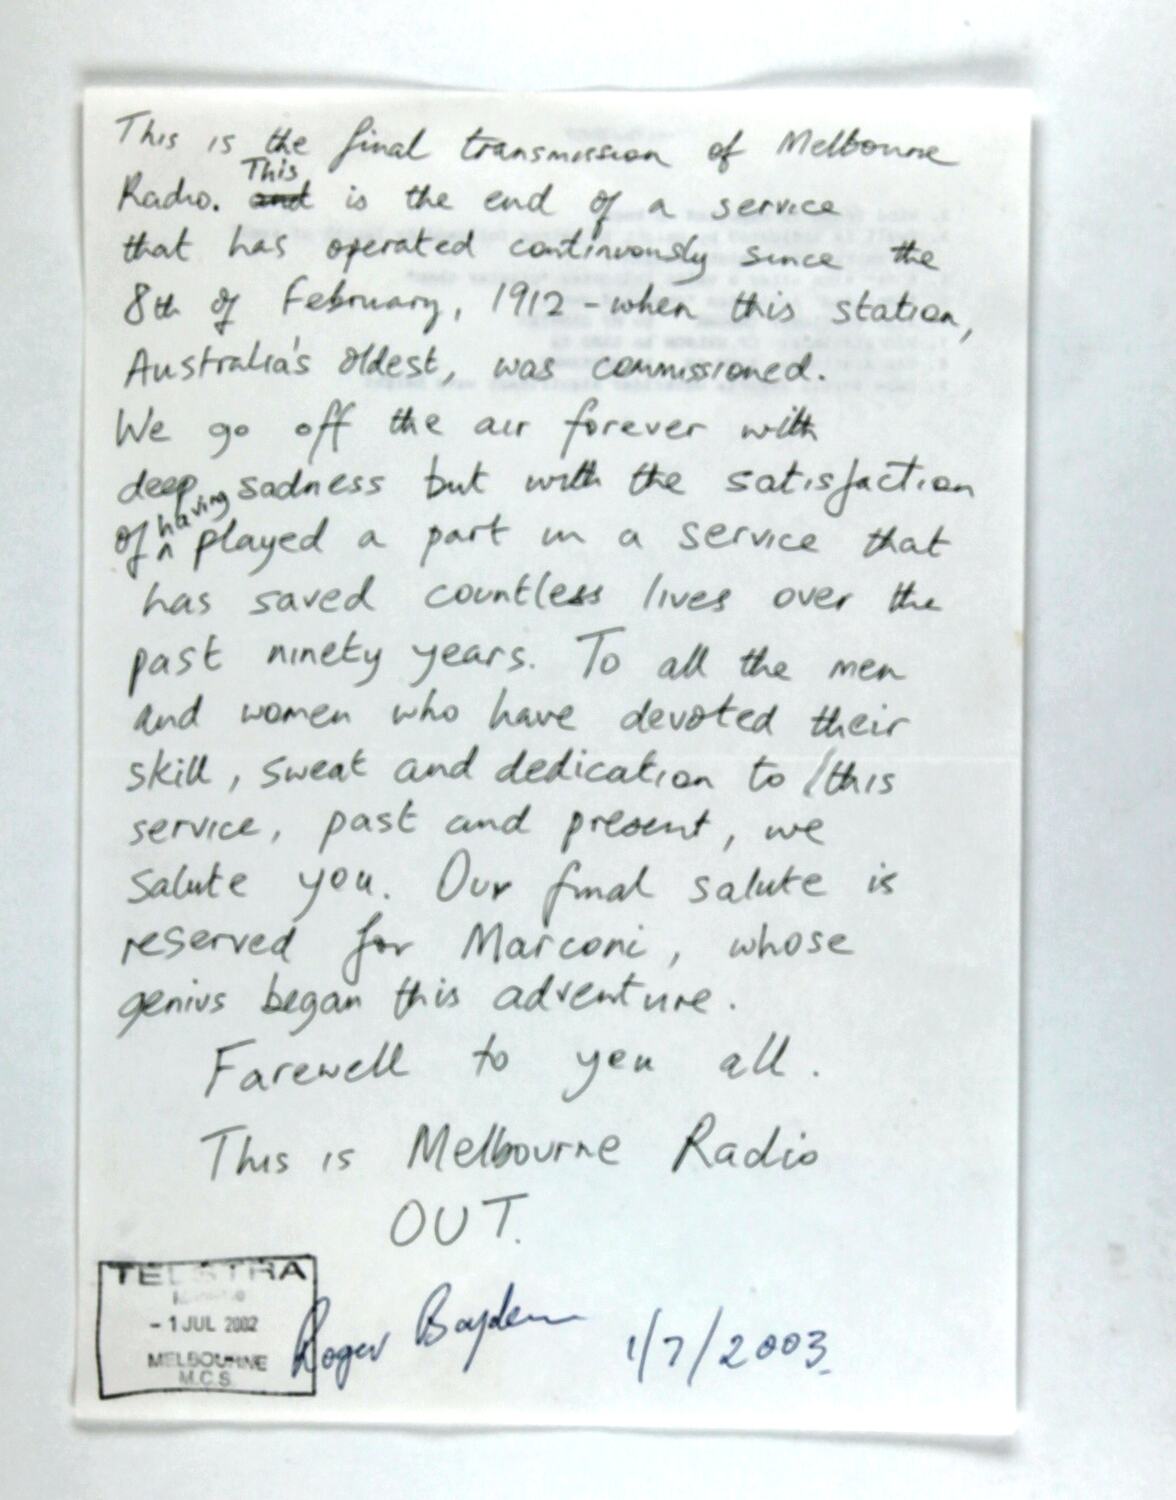 This is the final transmission of Melbourne
Radio. This and is the end of a service
that has operated continuously since the
8th of February, 1912 - when this station,
Australia's oldest, was commissioned.
We go off the air forever with
deep sadness but with the satisfaction
of having played a part in a service that
has saved countless lives over the
past ninety years. To all the men
and women who have devoted their
skill, sweat and dedication to this
service, past and present, we
salute you. Our final salute is
reserved for Marconi, whose
genius began this adventure.
Farewell to you all.
This is Melbourne Radio
OUT.
TELSTRA
- 1 JUL 2002
MELBOURNE
M.C.S.
Roger Bayden 1/7/2003